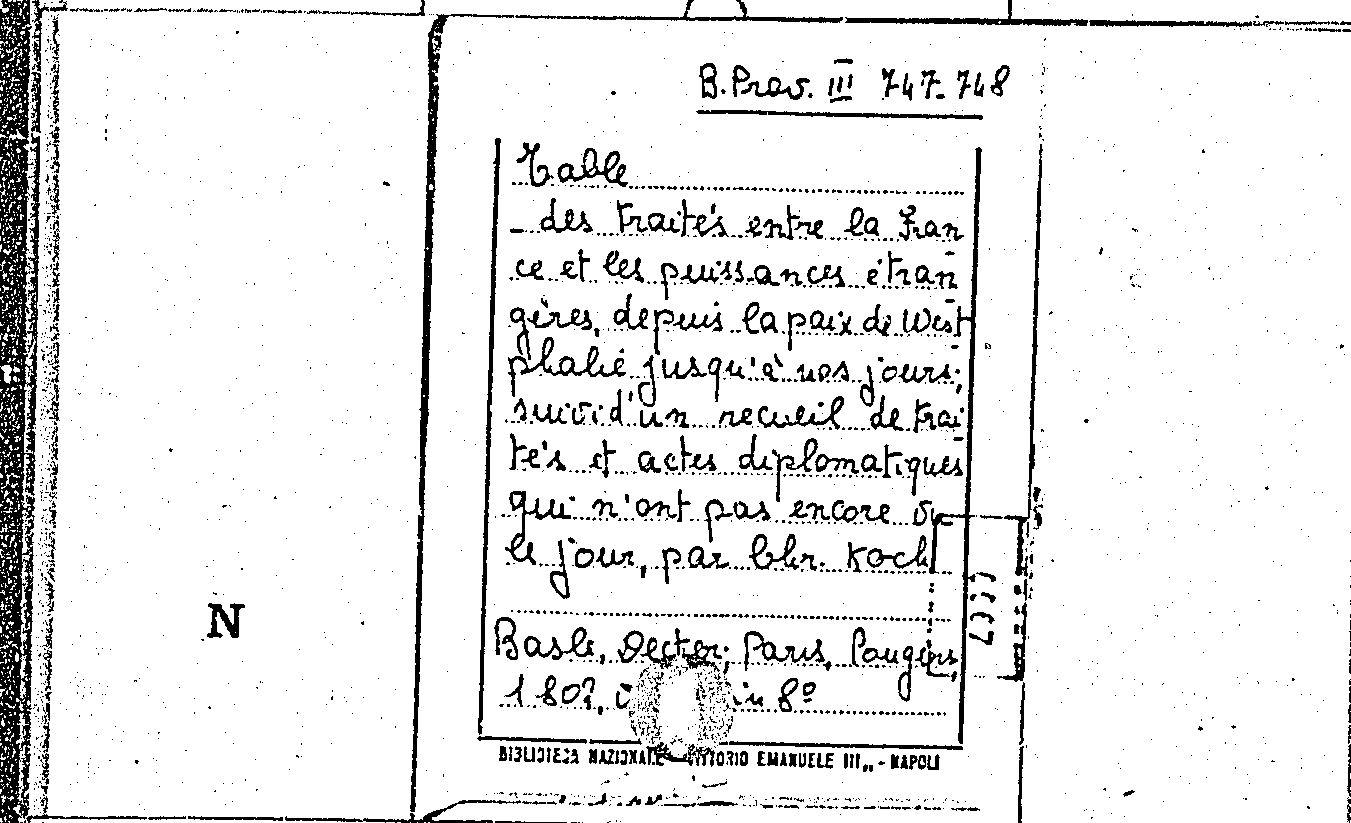 B. Prov. III 747-748
Table
- des traités entre la Fran-
ce et les puissances étran-
gères, depuis la paix de West-
phalie jusqu'à nos jours;
suivi d'un recueil de trai-
tés et actes diplomatiques
qui n'ont pas encore vu
le jour, par Chr. Koch
Basle, Decker; Paris, Pougens,
1802, in 8º
BIBLIOTECA NAZIONALE "VITTORIO EMANUELE III„ - NAPOLI
N